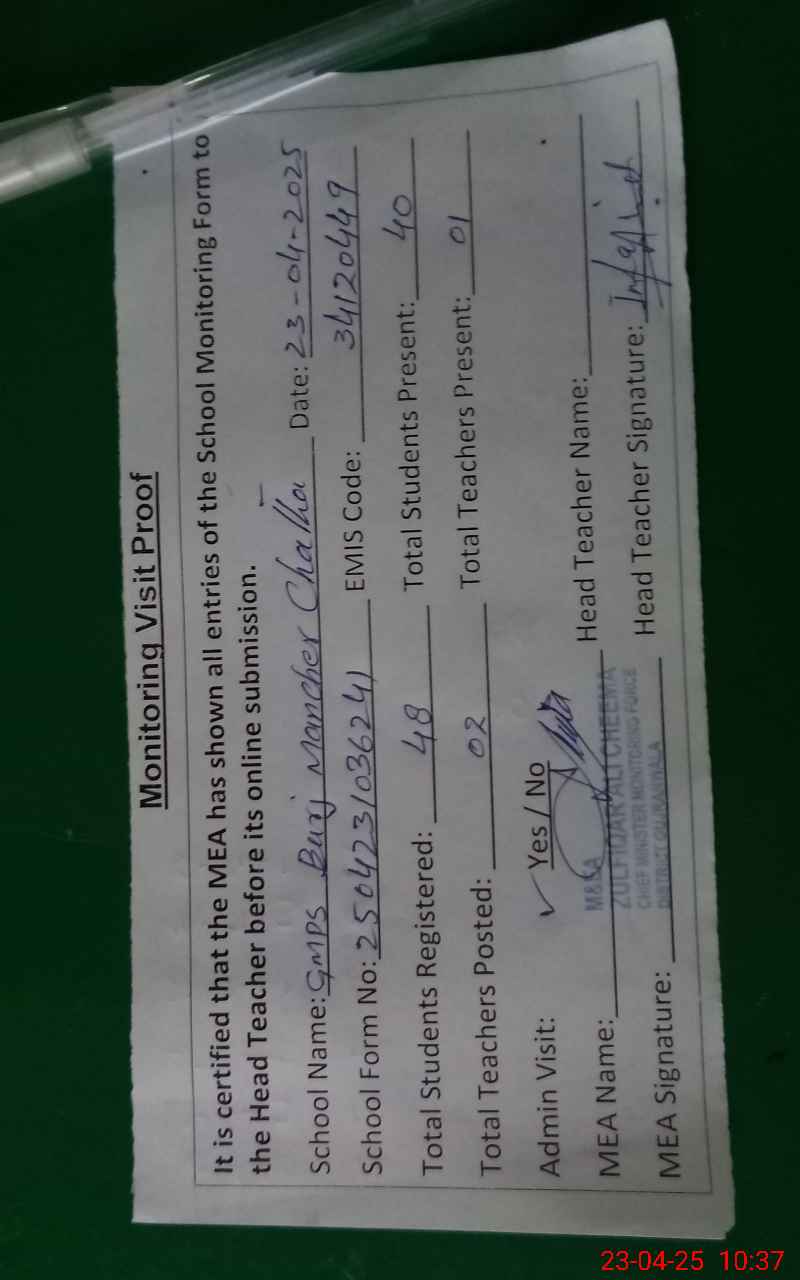 Monitoring Visit Proof
It is certified that the MEA has shown all entries of the School Monitoring Form to
the Head Teacher before its online submission.
School Name: GMPS Burj Mancher Chatha Date: 23-04-2025
School Form No: 250423103624 1 EMIS Code: 34120449
Total Students Registered: 48 Total Students Present: 40
Total Teachers Posted: 02 Total Teachers Present: 01
Admin Visit: ✓ Yes / No
M&EA
MEA Name: ZULFIQAR ALI CHEEMA Head Teacher Name:
CHIEF MINISTER MONITORING FORCE
DISTRICT GUJRANWALA
MEA Signature: Head Teacher Signature:
23-04-25 10:37